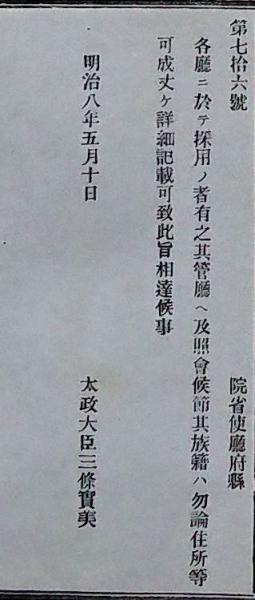 第七拾六號　院省使廳府縣
各廳ニ於テ採用ノ者有之其管廳ヘ及照會候節其族籍ハ勿論住所等
可成丈ケ詳細記載可致此旨相達候事
明治八年五月十日　太政大臣三條實美